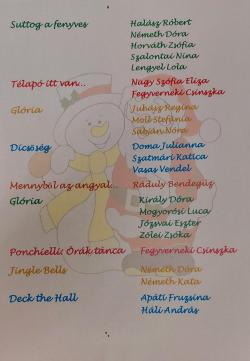 Suttog a fenyves
Halász Róbert
Németh Dóra
Horváth Zsófia
Szalontai Nina
Lengyel Lola
Télapó itt van...
Nagy Szófia Eliza
Fegyverneki Csinszka
Glória
Juhász Regina
Moll Stefánia
Sábján Nóra
Dicsőség
Doma Julianna
Szatmári Katica
Vasas Vendel
Mennyből az angyal...
Ráduly Bendegúz
Glória
Király Dóra
Mogyorósi Luca
Józsvai Eszter
Zólei Zsóka
Ponchielli: Órák tánca
Fegyverneki Csinszka
Jingle Bells
Németh Dóra
Németh Kata
Deck the Hall
Apáti Fruzsina
Háli András